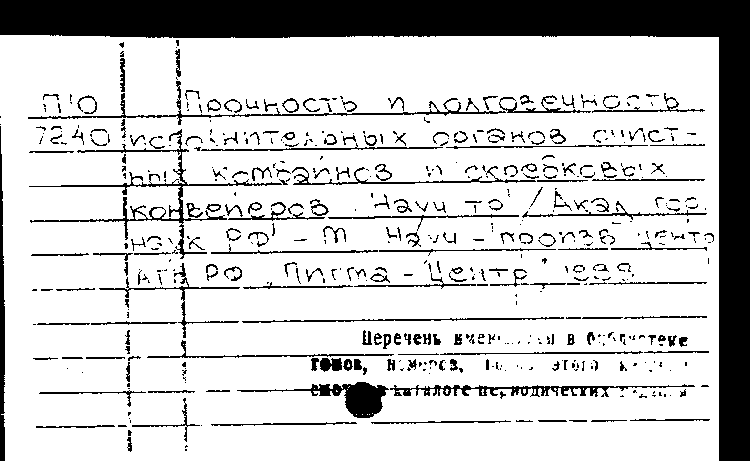 П'О Прочность и долговечность
7240 исполнительных органов очист-
ных комбайнов и скребковых
конвейеров. Науч тр / Акад гор.
наук РФ - М Науч - произв центр
АГН РФ, Пигма - Центр, 1999
Перечень имеющихся в библиотеке
томов, номеров, этого
каталоге периодических изданий